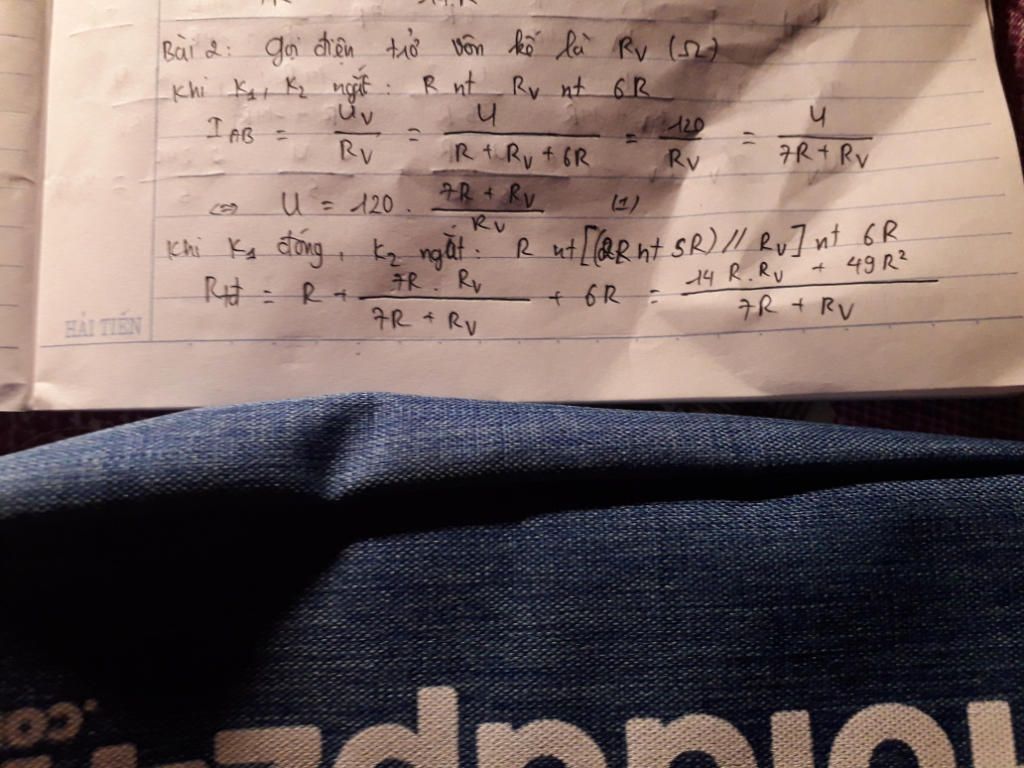 Bài 2: Gọi điện trở vôn kế là Rv (Ω)
Khi K1, K2 ngắt: R nt Rv nt 6R
I AB = Uv / Rv = U / (R + Rv + 6R) = 120 / Rv = U / (7R + Rv)
<=> U = 120 . (7R + Rv) / Rv (1)
Khi K1 đóng, K2 ngắt: R nt [(2R nt 5R) // Rv] nt 6R
Rtđ = R + (7R . Rv) / (7R + Rv) + 6R = (14 R.Rv + 49R²) / (7R + Rv)
HẢI TIẾN